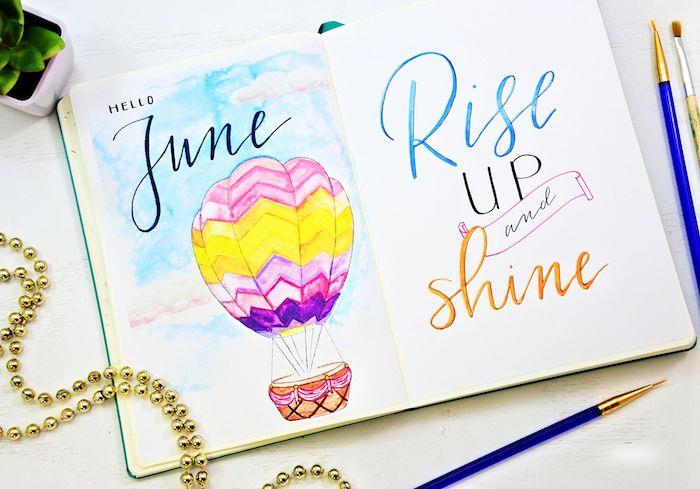 HELLO
June
Rise
UP
and
shine